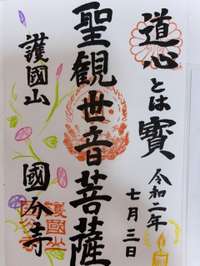 道心とは寳
令和二年
七月三日
聖観世音菩薩
護國山
國分寺